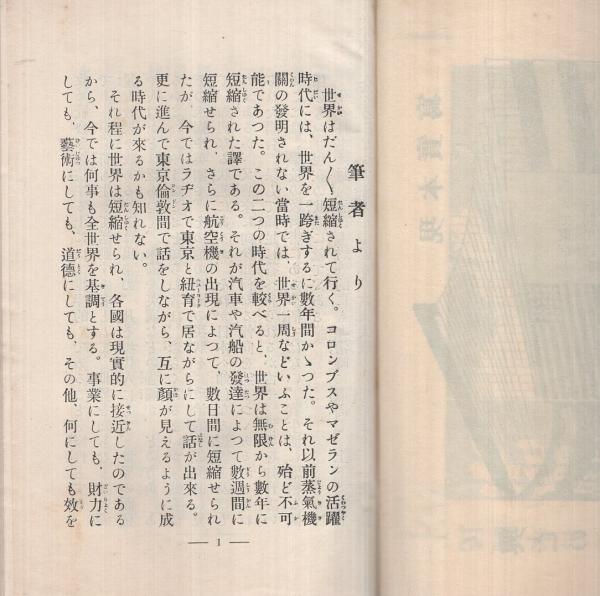 筆者より
世界はだん〳〵短縮されて行く。コロンブスやマゼランの活躍
時代には、世界を一跨ぎするに數年間かゝつた。それ以前蒸氣機
關の發明されない當時では、世界一周などいふことは、殆ど不可
能であつた。この二つの時代を較べると、世界は無限から數年に
短縮された譯である。それが汽車や汽船の發達によつて數週間に
短縮せられ、さらに航空機の出現によつて、數日間に短縮せられ
たが、今ではラヂオで東京と紐育で居ながらにして話が出來る。
更に進んで東京倫敦間で話をしながら、互に顏が見えるように成
る時代が來るかも知れない。
それ程に世界は短縮せられ、各國は現實的に接近したのである
から、今では何事も全世界を基調とする。事業にしても、財力に
しても、藝術にしても、道德にしても、その他、何にしても效を
— 1 —